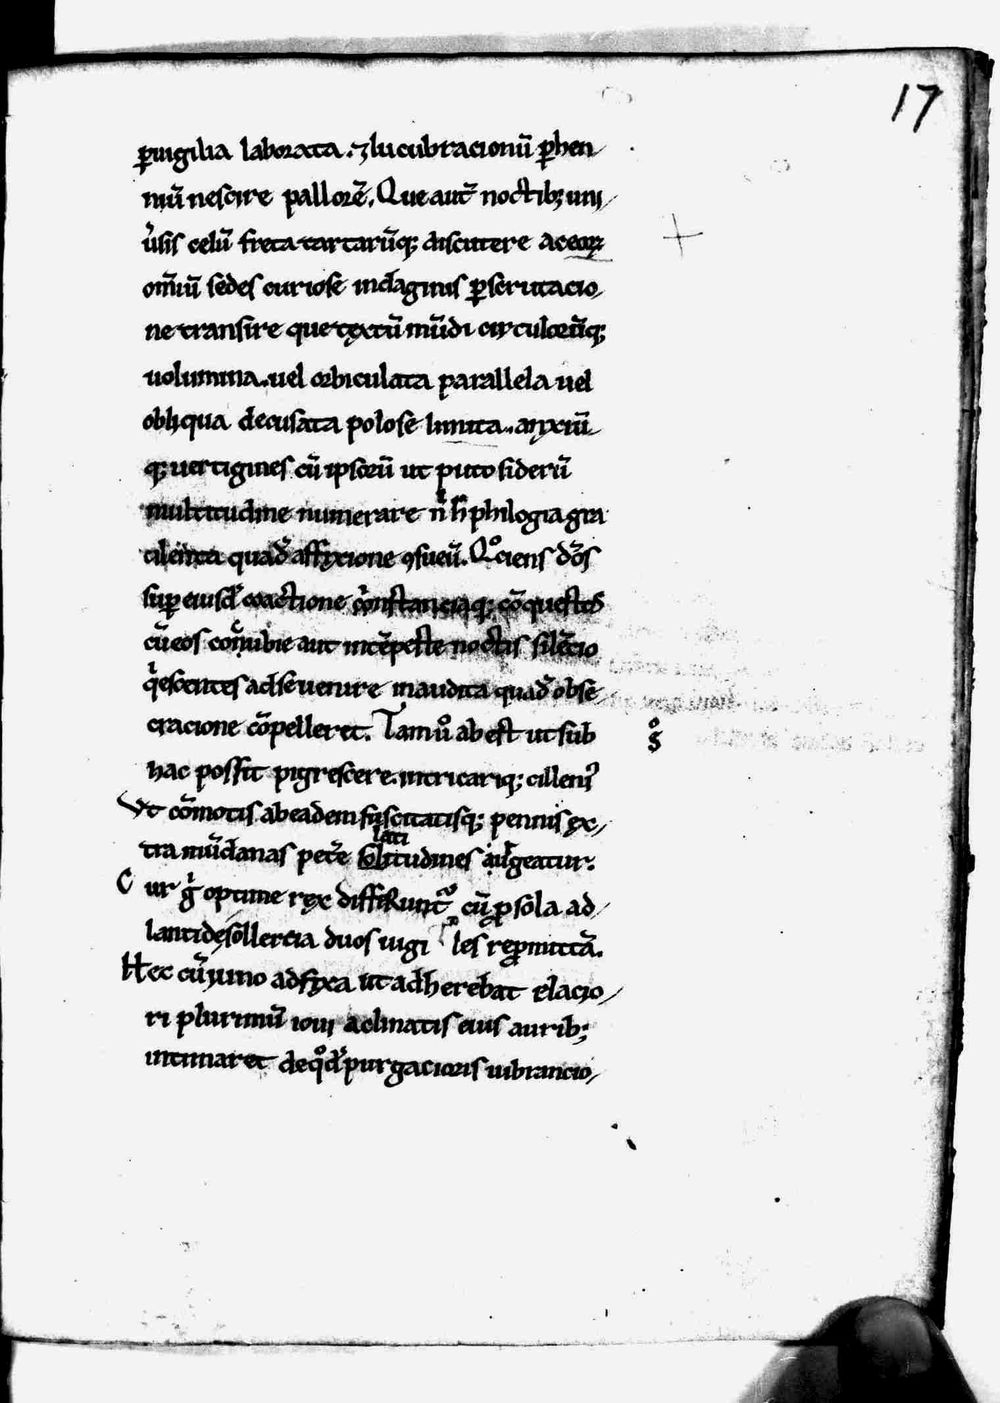 17
ꝑuigilia laborata. ⁊ lucubracionũ ꝑhen
niũ nescire pallorẽ. Que aut̃ noctibꝫ uni
ũsis celũ freta tartarũqꝫ discutere ac eoꝝ
om̃iũ sedes curiose indaginis ꝑscrutacio
ne transire que textũ mũdi circulorũqꝫ
uolumina. uel orbiculata parallela uel
obliqua decusata polos e limita. anxiũ
qꝫ uertigines cũ ipsorũ ut puto siderũ
multitudine numerare ñ h̃ philogia gra
cilenta quad̃ affixione ꝯsueũ. Qͦciens dõs
suꝑ eiusd̃ coactione cõnstanciaqꝫ cõquestos
cũ eos comubie aut intẽpeste noctis silẽcio
q̃escentes ad se uenire inaudita quad̃ obse
cracione cõpelleret. Tam ũ abest ut sub
hac possit pigrescere. intricariqꝫ cilleni᷒
Ut cõmotis ab eadem suscitatisqꝫ pennis ex
tra mũdanas petẽ
lati
tudines augeatur.
Cur g̃ optime rex differunt᷑ cũ ꝓ sola ad
lantide sollercia duos iugi les reꝓmittã.
Hec cũ iuno adfixa ut adherebat elacio
ri plurimũ ioui aclinatis eius auribꝫ
intimaret de qͦd̃ purgacioris uibrancio
gͦ